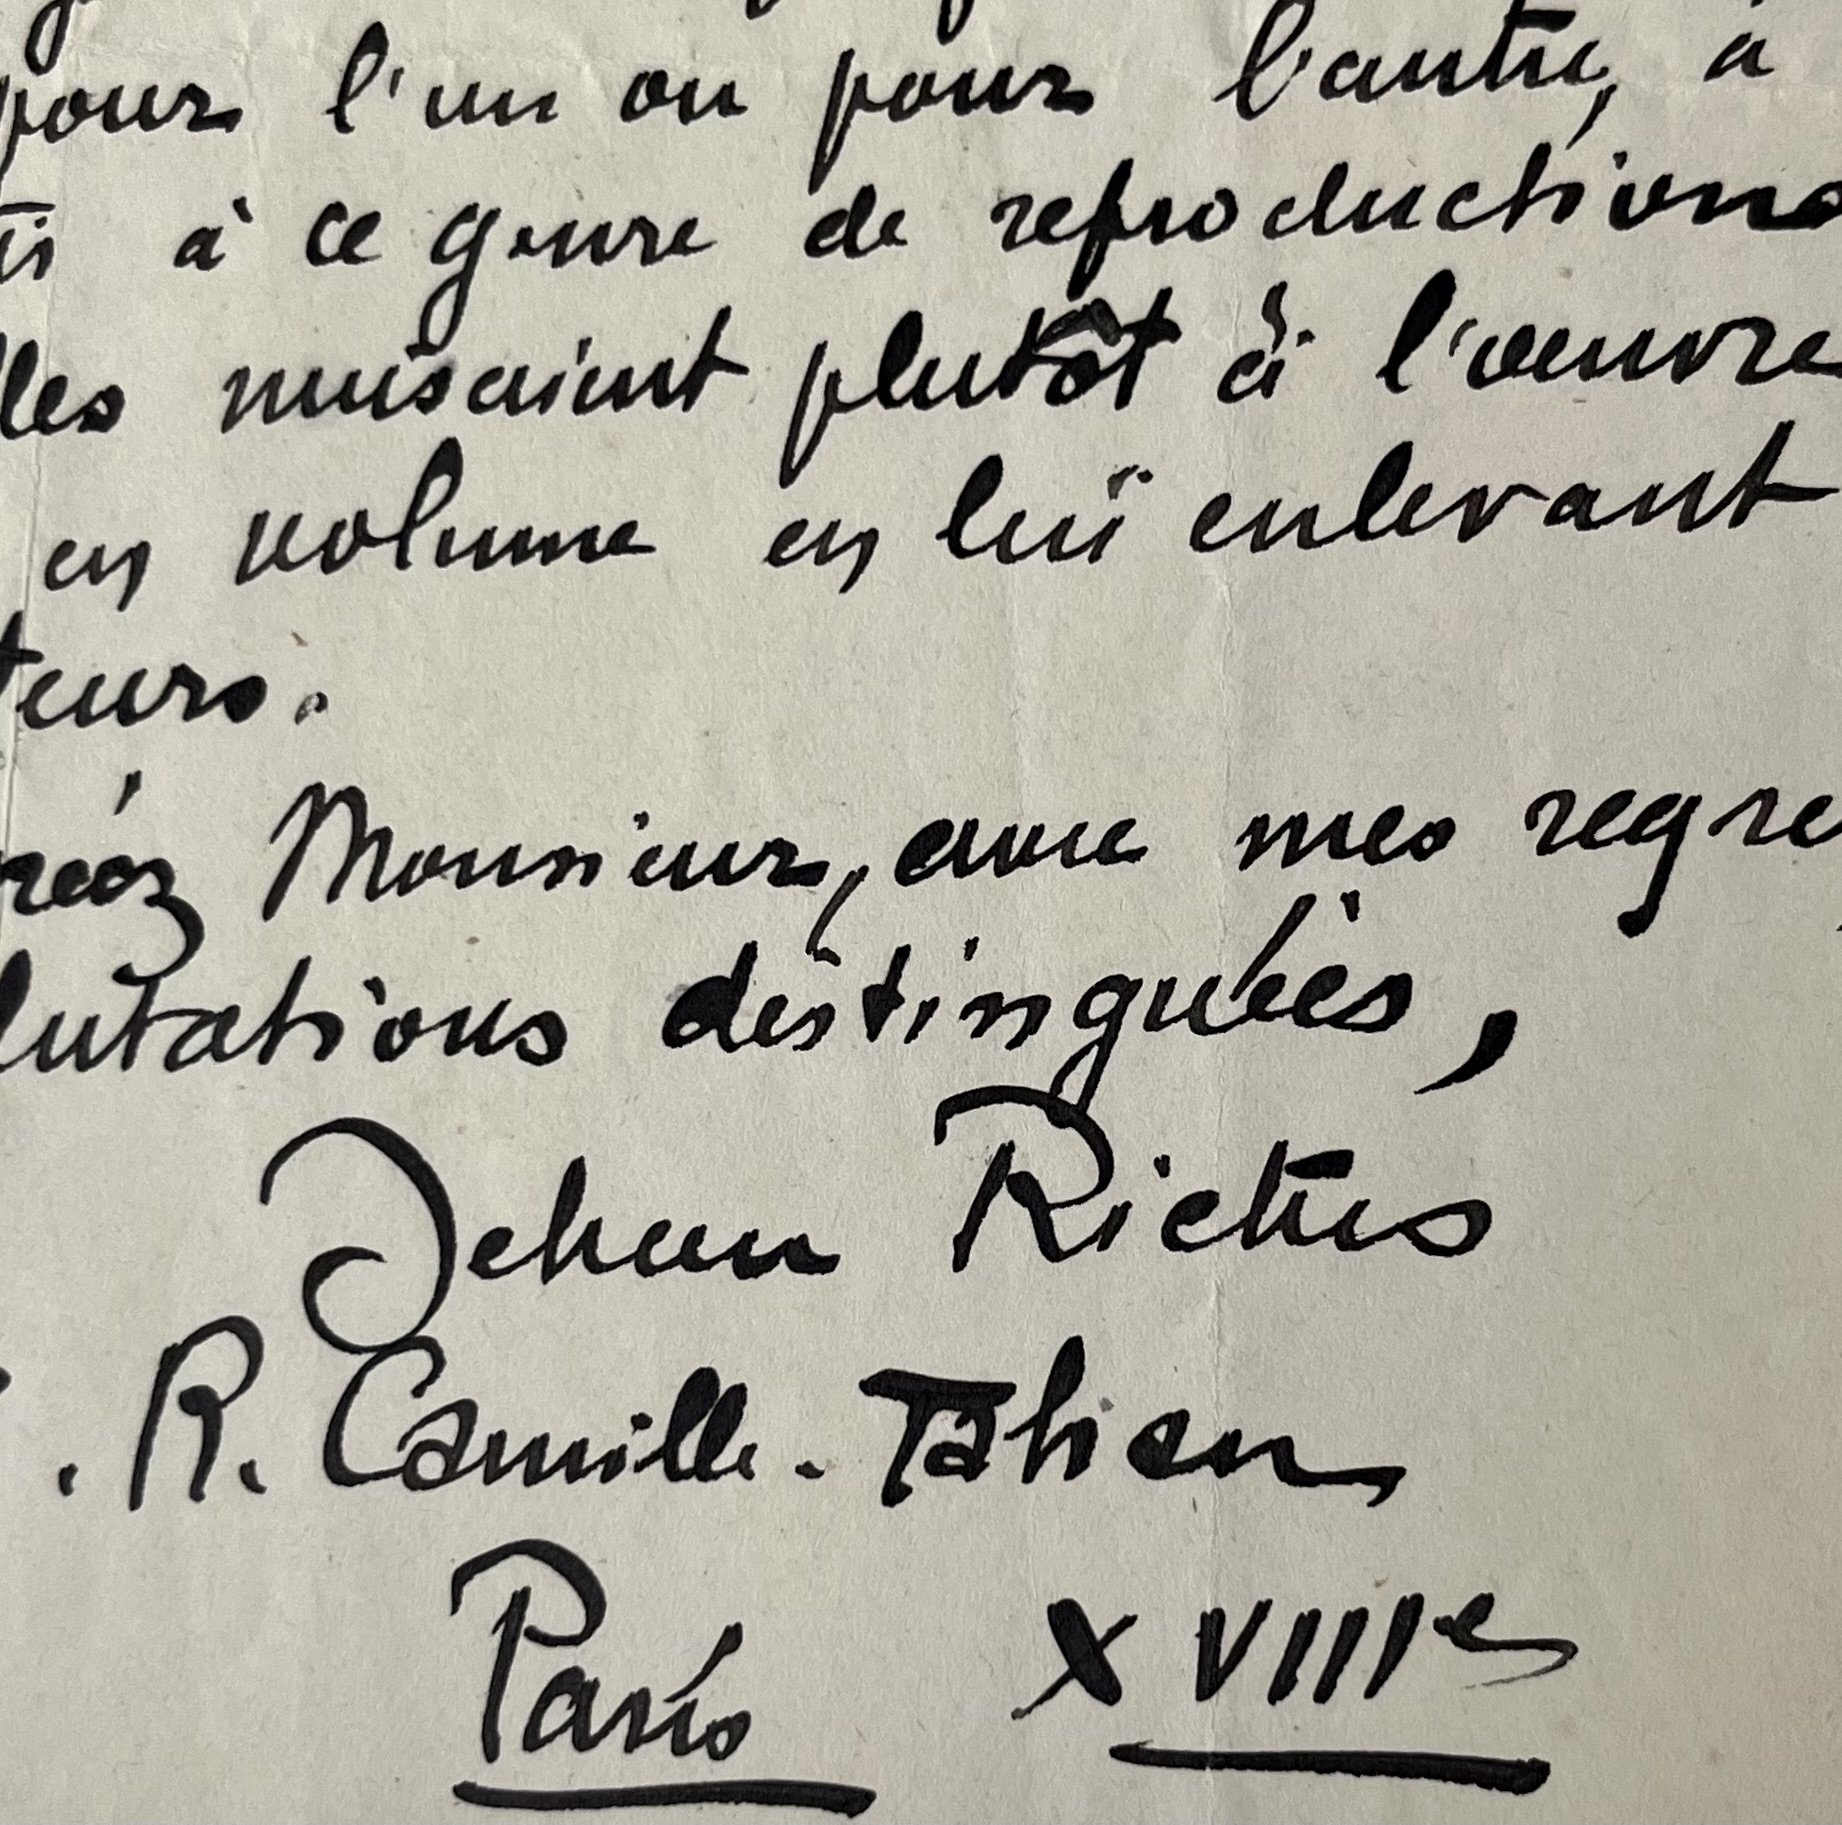 pour l'un ou pour l'autre, à
tis à ce genre de reproductions
lles nuisaient plutôt à l'œuvre
en volume en lui enlevant
teurs.
réez Monsieur, avec mes regre
lutations distinguées,
Jehan Rictus
. R. Camille. Tahan
Paris XVIIIe